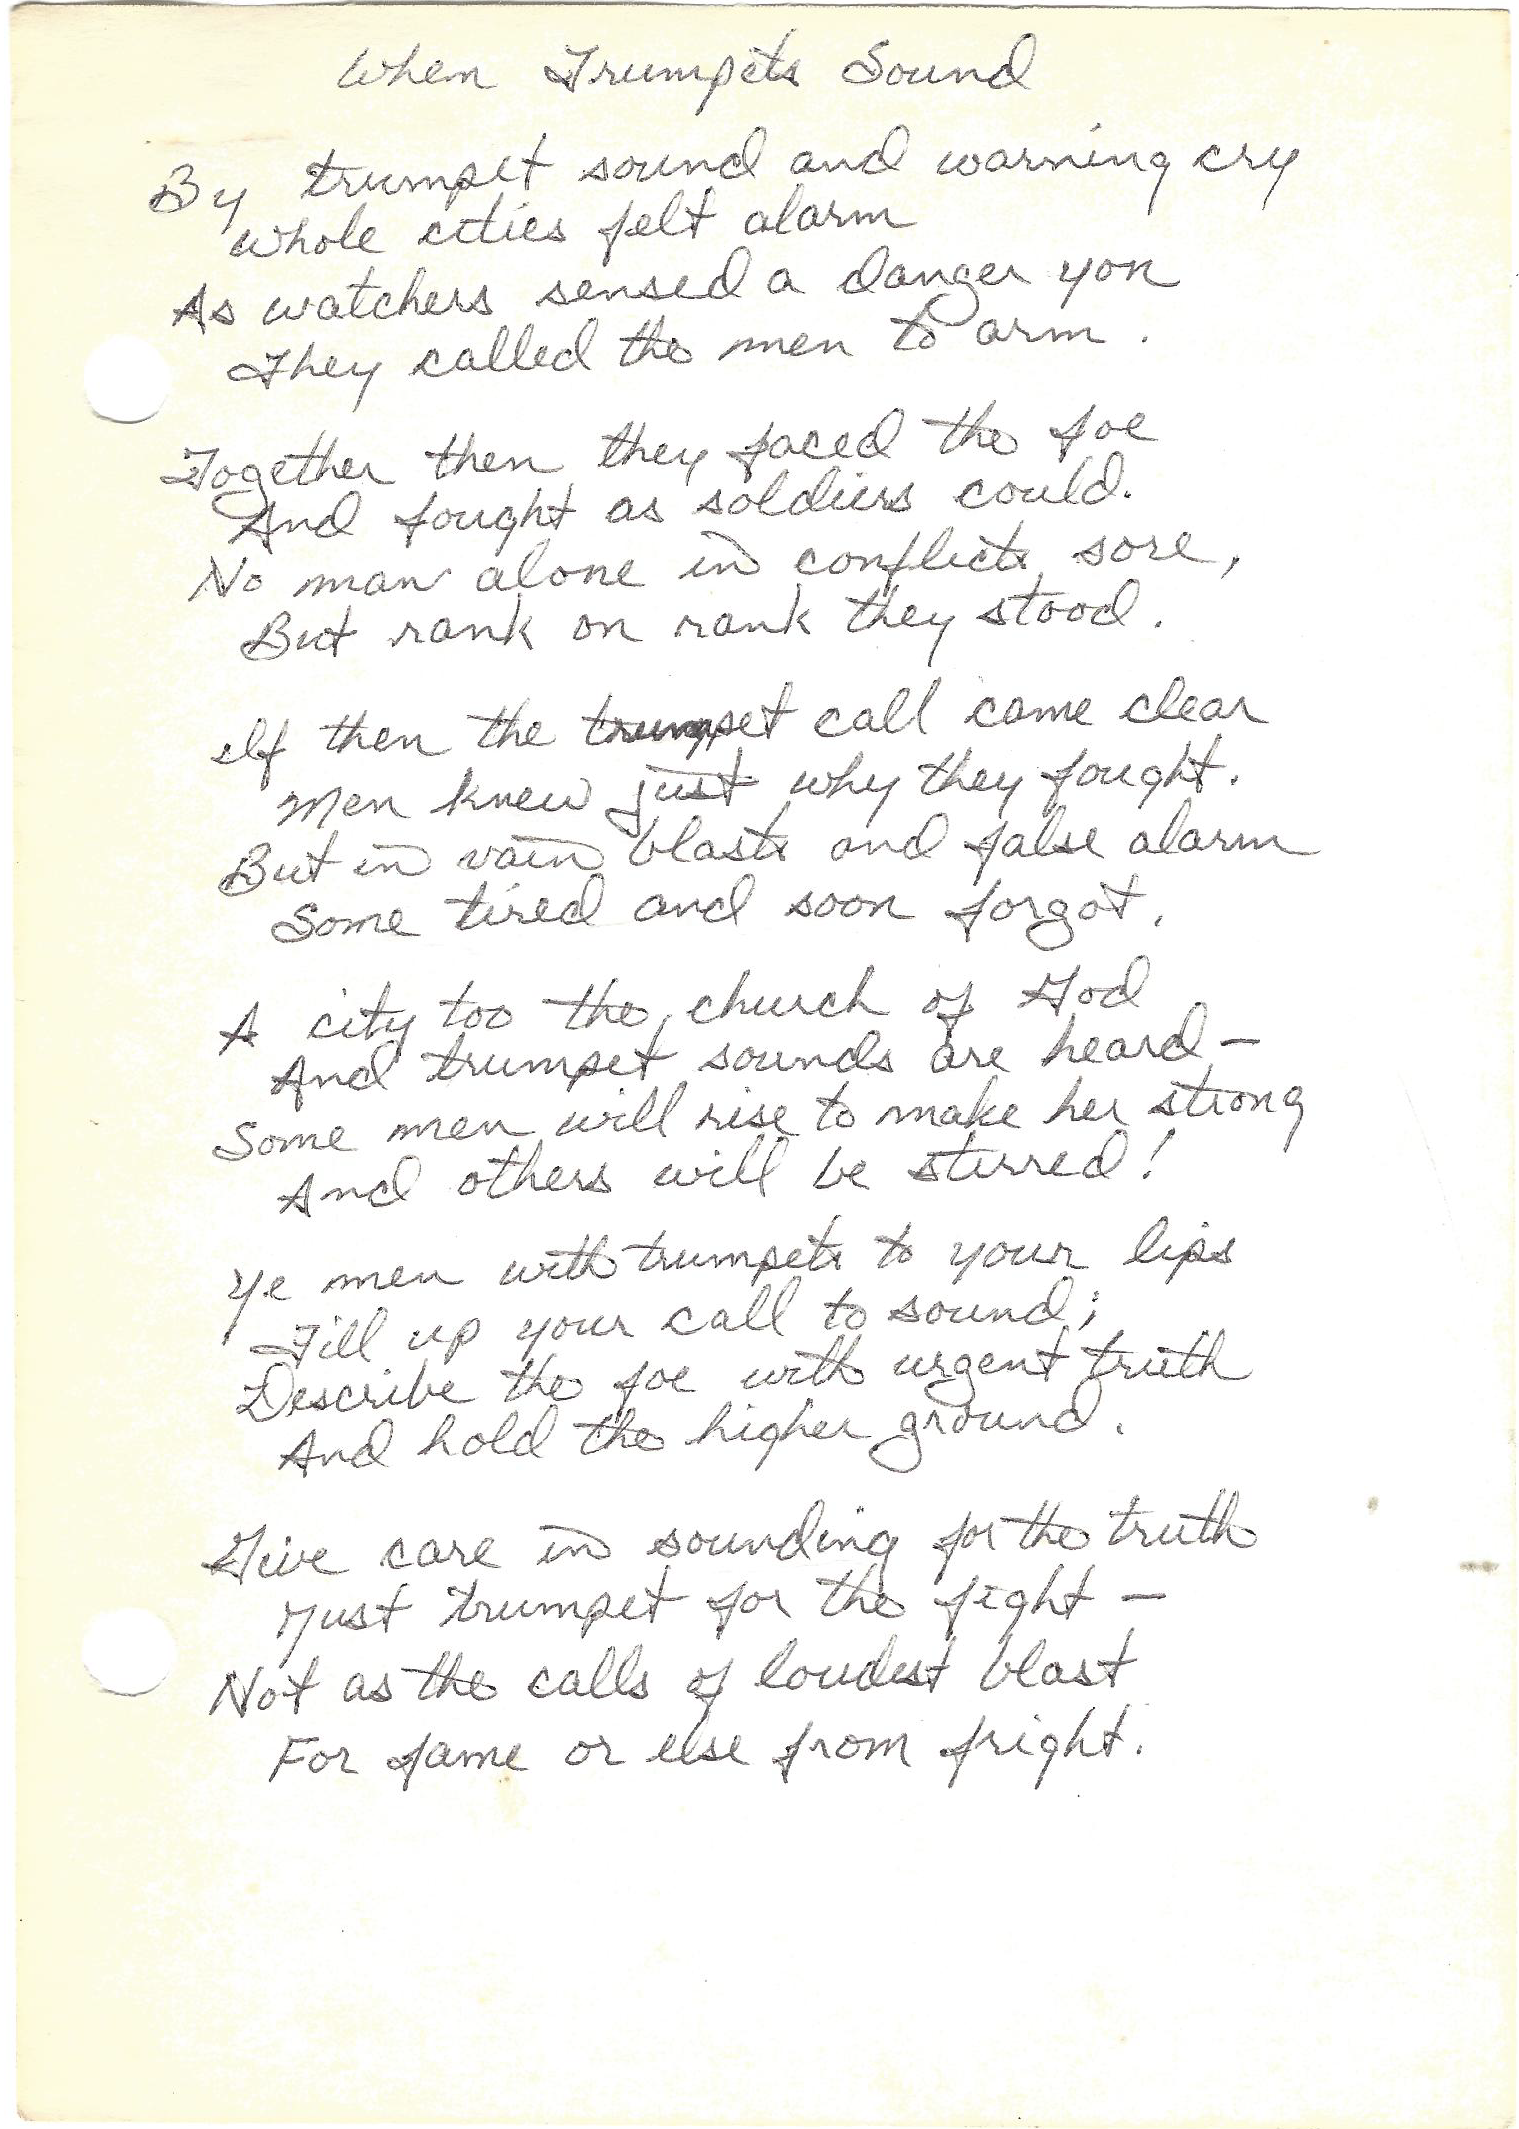 When Trumpets Sound
By trumpet sound and warning cry
Whole cities felt alarm
As watchers sensed a danger yon
They called the men to arm.
Together then they faced the foe
And fought as soldiers could.
No man alone in conflicts sore,
But rank on rank they stood.
If then the trumpet call came clear
Men knew just why they fought.
But in vain blasts and false alarm
Some tired and soon forgot.
A city too the church of God
And trumpet sounds are heard—
Some men will rise to make her strong
And others will be stirred!
Ye men with trumpets to your lips
Fill up your call to sound;
Describe the foe with urgent truth
And hold the higher ground.
Give care in sounding for the truth
Must trumpet for the fight—
Not as the calls of loudest blast
For fame or else from fright.